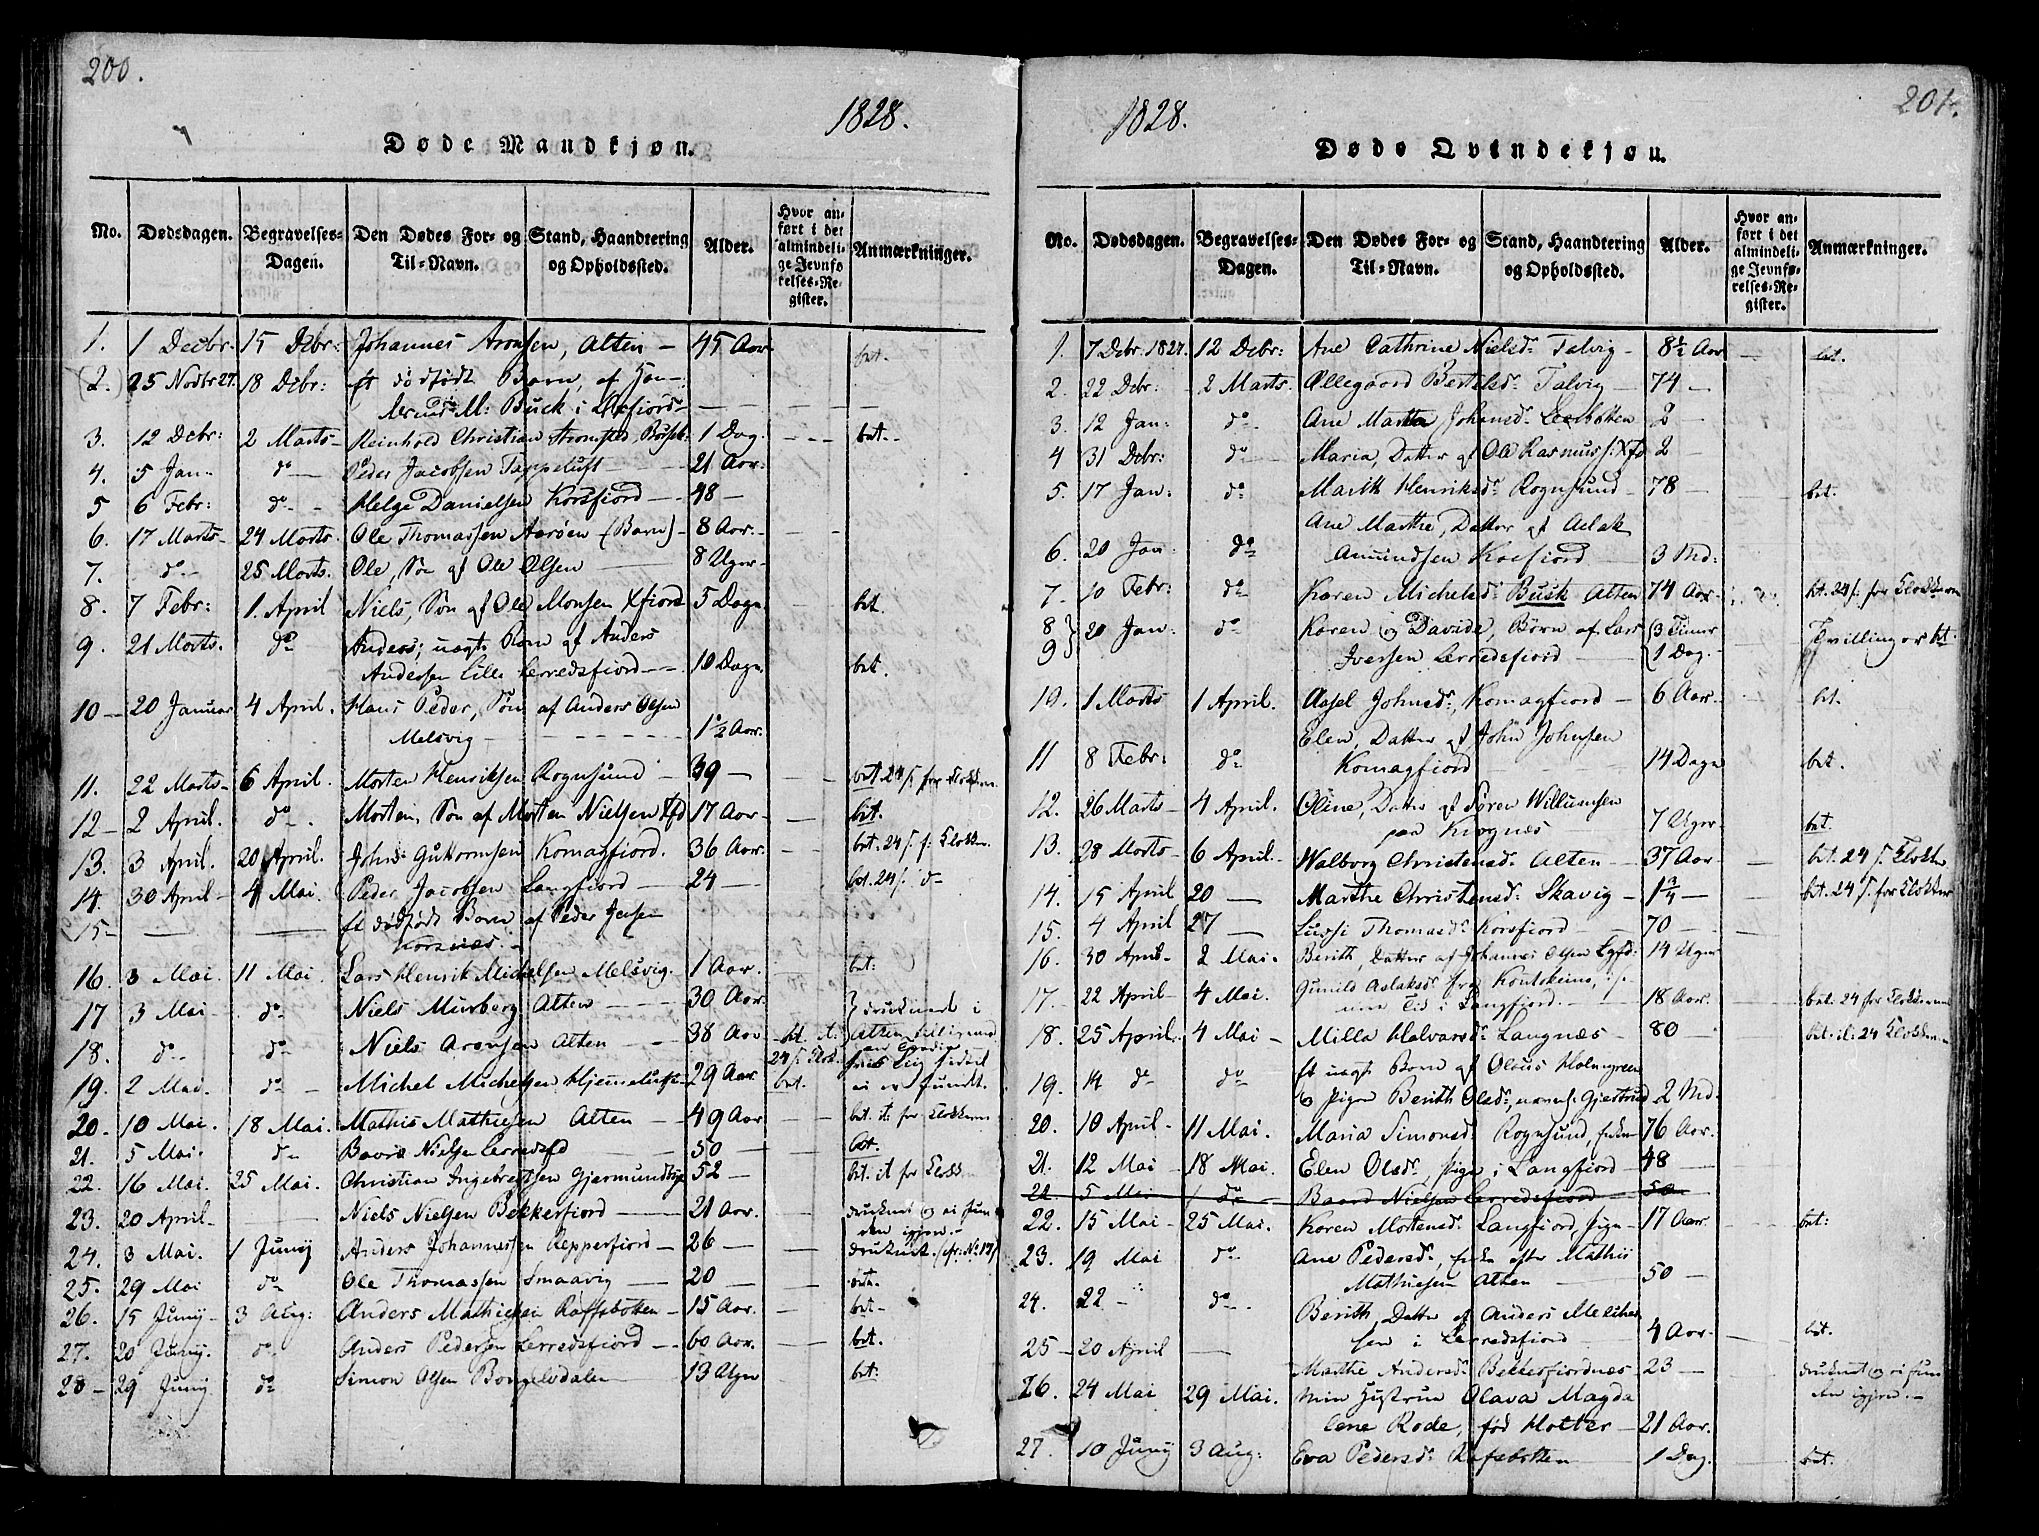 200.
1828.
Døde Mandkjøn.
No. Dødsdagen. Begravelses-Dagen. Den Dødes For- og Til-Navn. Stand, Haandtering og Opholdssted. Alder. Hvor anført i det almindelige Jevnførelses-Register. Anmærkninger.
1. 1 Decbr. 15 Debr: Johannes Aronsen, Alten - 45 Aar bet.
(2.) 25 Novbr 27. 18 Debr: Et dødfødt Barn, af Han-
M: Buck i Øxfiord
3. 12 Debr: 2 Marts Reinhold Christian 1 Dag. bet.
4. 5 Jan do Peder Jacobsen Tappeluft 21 Aar:
5 6 Febr: do Helge Danielsen Korsfiord 48 -
6. 17 Marts 24 Marts Ole Thomassen Aarøen (Barn) 8 Aar.
7. do 25 Marts. Ole, Søn af Ole Olsen 8 Uger
8. 7 Febr: 1. April Niels, Søn af Ole Monsen Xfiord 5 Dage bet.
9. 21 Marts. do Anders, uægt. Barn af Anders
Andersen Lille Lerredsfiord 10 Dage bet.
10 20 Januar 4 April. Hans Peder, Søn af Anders Olsen
Melsvig 1½ Aar.
11. 22 Marts 6 April. Morten Henriksen Rognsund 39 - bet. 24 s. for Klokkeren
12 2 April. do. Morten, Søn af Morten Nielsen Xfd 17 Aar bet.
13. 3 April. 20 April. John Guttormsen Komagfiord. 36 Aar. bet. 24 s. f. Klokken
14. 30 April 4 Mai. Peder Jacobsen Langfiord 24 - bet. 24 s. do
15 - - Et dødfødt Barn af Peder Jensen
Korsnæs.
16. 3 Mai. 11 Mai. Lars Henrik Michelsen Melsvig. 1 Aar. bet:
17 3 Mai do Niels Murberg Alten 30 Aar. druknede i
18. do do Niels Aronsen Alten 38 Aar Alten
19. 2 Mai. do Michel Michelsen Hjemmeluft 29 Aar bet. ei er fundt.
20. 10 Mai. 18 Mai. Mathis Mathiesen Alten 49 Aar bet. it. for Klokkeren
21. 5 Mai. do Baard Nielsen Lerredsfd 50 - bet.
22. 16 Mai. 25 Mai. Christian Ingebretsen Gjermundsby 52 - bet. it for Klokk
23. 20 April Niels Nielsen Bekkerfiord 21 Aar. druknet og ei fun
den igjen.
24. 3 Mai. 1 Junij Anders Johannesen Repperfiord 26 - druknet. (cfr. No 17)
25. 29 Mai do Ole Thomassen Smaavig 20 - bet.
26. 15 Junij 3 Aug: Anders Mathiesen Rafsbotten 15 Aar. bet
27. 20 Junij. do Anders Pedersen Lerredsfiord 60 Aar. bet.
28 29 Junij do Simon Olsen 13 Uger bet:
201.
1828.
Døde Qvindekjøn.
No. Dødsdagen. Begravelses-Dagen. Den Dødes For- og Til-Navn. Stand, Haandtering og Opholdssted. Alder. Hvor anført i det almindelige Jevnførelses-Register. Anmærkninger.
1. 7 Debr. 1827. 12 Debr: Ane Cathrine Nielsd. Talvig 8½ Aar bet.
2. 22 Debr: 2 Marts. Ollegaard Bertelsd. Talvig 74 -
3. 12 Jan: do Ane Martha Johansd. Leerbotten 2 -
4 31 Debr: do Maria, Datter af Ole Rasmuss: Xfd 2 -
5. 17 Jan: do Marith Henriksd. Rognsund 78 bet.
Ane Marthe, Datter af Aslak
6. 20 Jan: do Amundsen Korsfiord 3 Md:
7 10 Febr: do Karen Michelsd. Busk Alten 74 Aar bet. 24 s. for Klokkeren
8 20 Jan: do Karen og Davide, Børn af Lars 3 Timer Tvillinger bet.
9 Iversen Lerredsfiord 1 Dag.
10. 1 Marts 1 April. Aasel Johnsd., Komagfiord 6 Aar. bet.
Elen, Datter af John Johnsen
11 8 Febr: do Komagfiord 14 Dage bet.
12. 26 Marts 4 April. Oline, Datter af Søren Willumsen
paa Krognæs 7 Uger bet.
13. 28 Marts 6 April. Walborg Christensd. Alten 37 Aar bet. 24 s. Klokken
14. 15 April 20 - Marthe Christensd: Skavig 1¾ - bet. 24 s. for Klokken
15. 4 April 27 - Lussi Thomasd. Korsfiord 70 -
16. 30 April 2 Mai. Berith, Datter af Johannes Olsen Lgfd: 14 Uger
17. 22 April 4 Mai. Gunild Aslaksd. fra Koutokeino, p.
Tid i Langfiord. 18 Aar. bet. 24 for Klokkeren
18. 25 April 4 Mai Milla Halvorsd. Langnæs 80 - bet. it: 24 Klokken
Et uægt. Barn af Olaus Holmgreen
19. 14 do do og Pigen Berith Olsd., 2 Md:
20. 10 April 11 Mai. Maria Simonsd. Rognsund, Enke 76 Aar.
21. 12 Mai 18 Mai. Elen Olsd. Pige i Langfiord 48 -
21 5 Mai do Baard Nielsen Lerredsfiord 50
22. 15 Mai 25 Mai. Karen Mortensd. Langfiord, Pige 17 Aar. bet:
23. 19 Mai do Ane Pedersd. Enke efter Mathis
Mathiesen Alten 50 -
24. 22 - do Berith, Datter af Anders Michel
sen i Lerredsfiord 4 Aar bet.
25 20 April - Marthe Andersd. Bekkerfiordnæs 23 - druknet og ei fun
den igjen.
26. 24 Mai 29 Mai. Min Hustrue Olava Magda
lene Rode, fød Holter 21 Aar.
27. 10 Junij 3 Aug: Eva Pedersd: Rafsbotten 1 Dag. bet.